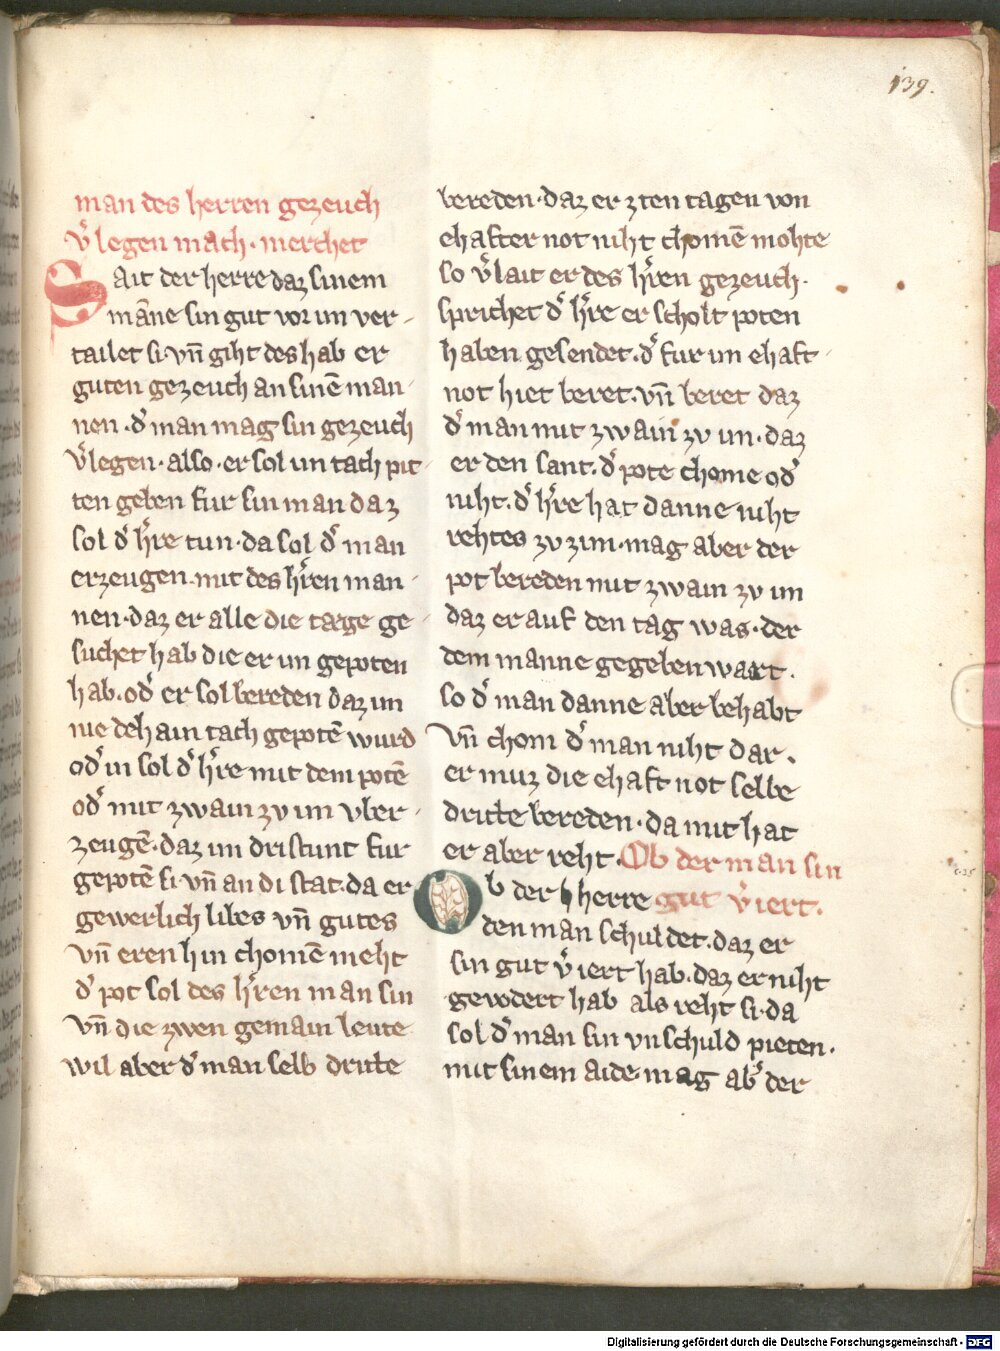 139.
man des herren gezeuch
v͛legen mach · merchet
Sait der herre daz sinem
mãne sin gut vor im ver-
tailet si · vñ giht des hab er
guten gezeuch an sinẽ man-
nen · d͛ man mag sin gezeuch
v͛legen · also · er sol im tach pit-
ten geben fur sin man daz
sol d͛ h͛re tun · da sol d͛ man
erzeugen · mit des h͛ren man-
nen · daz er alle die tæge ge-
suchet hab die er im gepoten
hab · od͛ er sol bereden daz im
nie dehain tach gepotẽ wurd
od͛ in sol d͛ h͛re mit dem potẽ
od͛ mit zwain zv im vber-
zeugẽ · daz im dristunt fur
gepotẽ si · vñ an di stat · da er
gewerlich libes vñ gutes
vñ eren hin chomẽ meht
d͛ pot sol des h͛ren man sin
vñ die zwen gemain leute
wil aber d͛ man selb dritte
bereden · daz er zten tagen von
ehafter not niht chomẽ mohte
so v͛lait er des h͛ren gezeuch ·
sprichet d͛ h͛re er scholt poten
haben gesendet · d͛ fur im ehaft-
not hiet beret · vñ beret daz
d͛ man mit zwain zv im · daz
er den sant · d͛ pote chome od͛
niht · d͛ h͛re hat danne niht
rehtes zv zim · mag aber der
pot bereden mit zwain zv im
daz er auf den tag was · der
dem manne gegeben wart ·
so d͛ man danne aber behabt
vñ chom d͛ man niht dar ·
er muz die ehaft not selbe
dritte bereden · da mit hat
er aber reht · Ob der man sin
Ob der herre gut v͛iert ·
den man schuldet · daz er
sin gut v͛iert hab · daz er niht
gevodert hab als reht si · da
sol d͛ man sin vnschuld pieten ·
mit sinem aide · mag ab͛ der
Digitalisierung gefördert durch die Deutsche Forschungsgemeinschaft - DFG